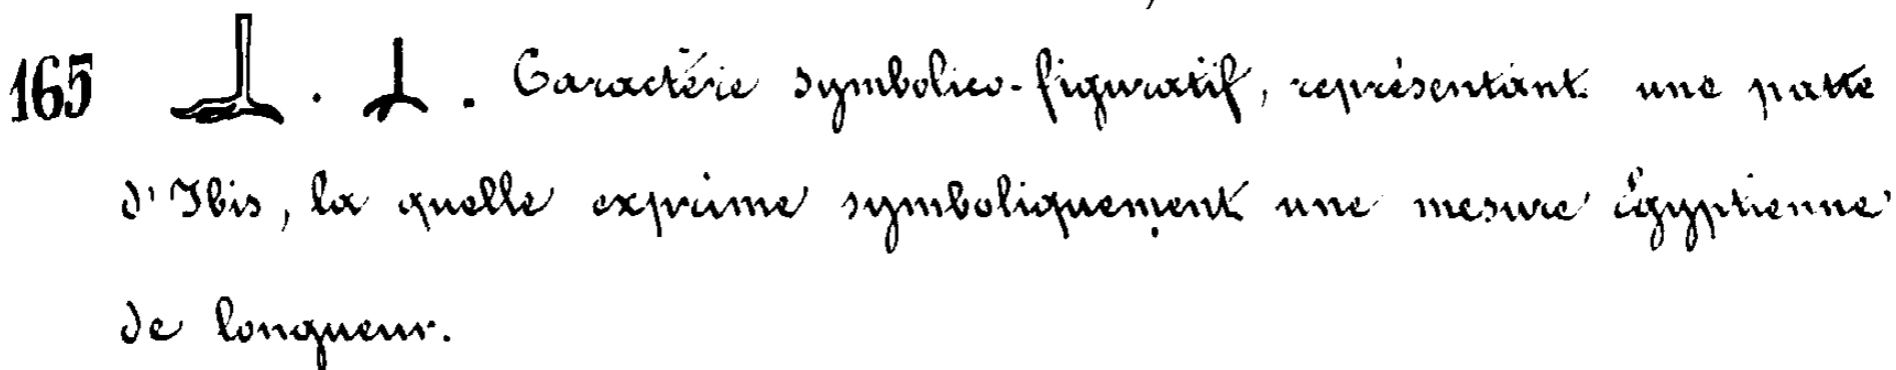 165 . . Caractère symbolico-figuratif, représentant une patte
d'Ibis, la quelle exprime symboliquement une mesure Égyptienne
de longueur.